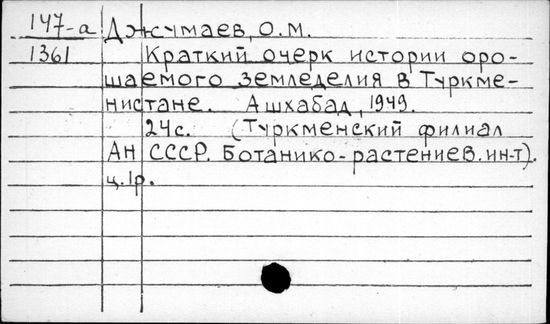 147-а Джумаев, О.М.
1361 Краткий очерк истории оро-
шаемого земледелия в Туркме-
нистане. Ашхабад, 1949.
24с. (Туркменский филиал
АН СССР. Ботанико-растениев. ин-т).
ц.1р.